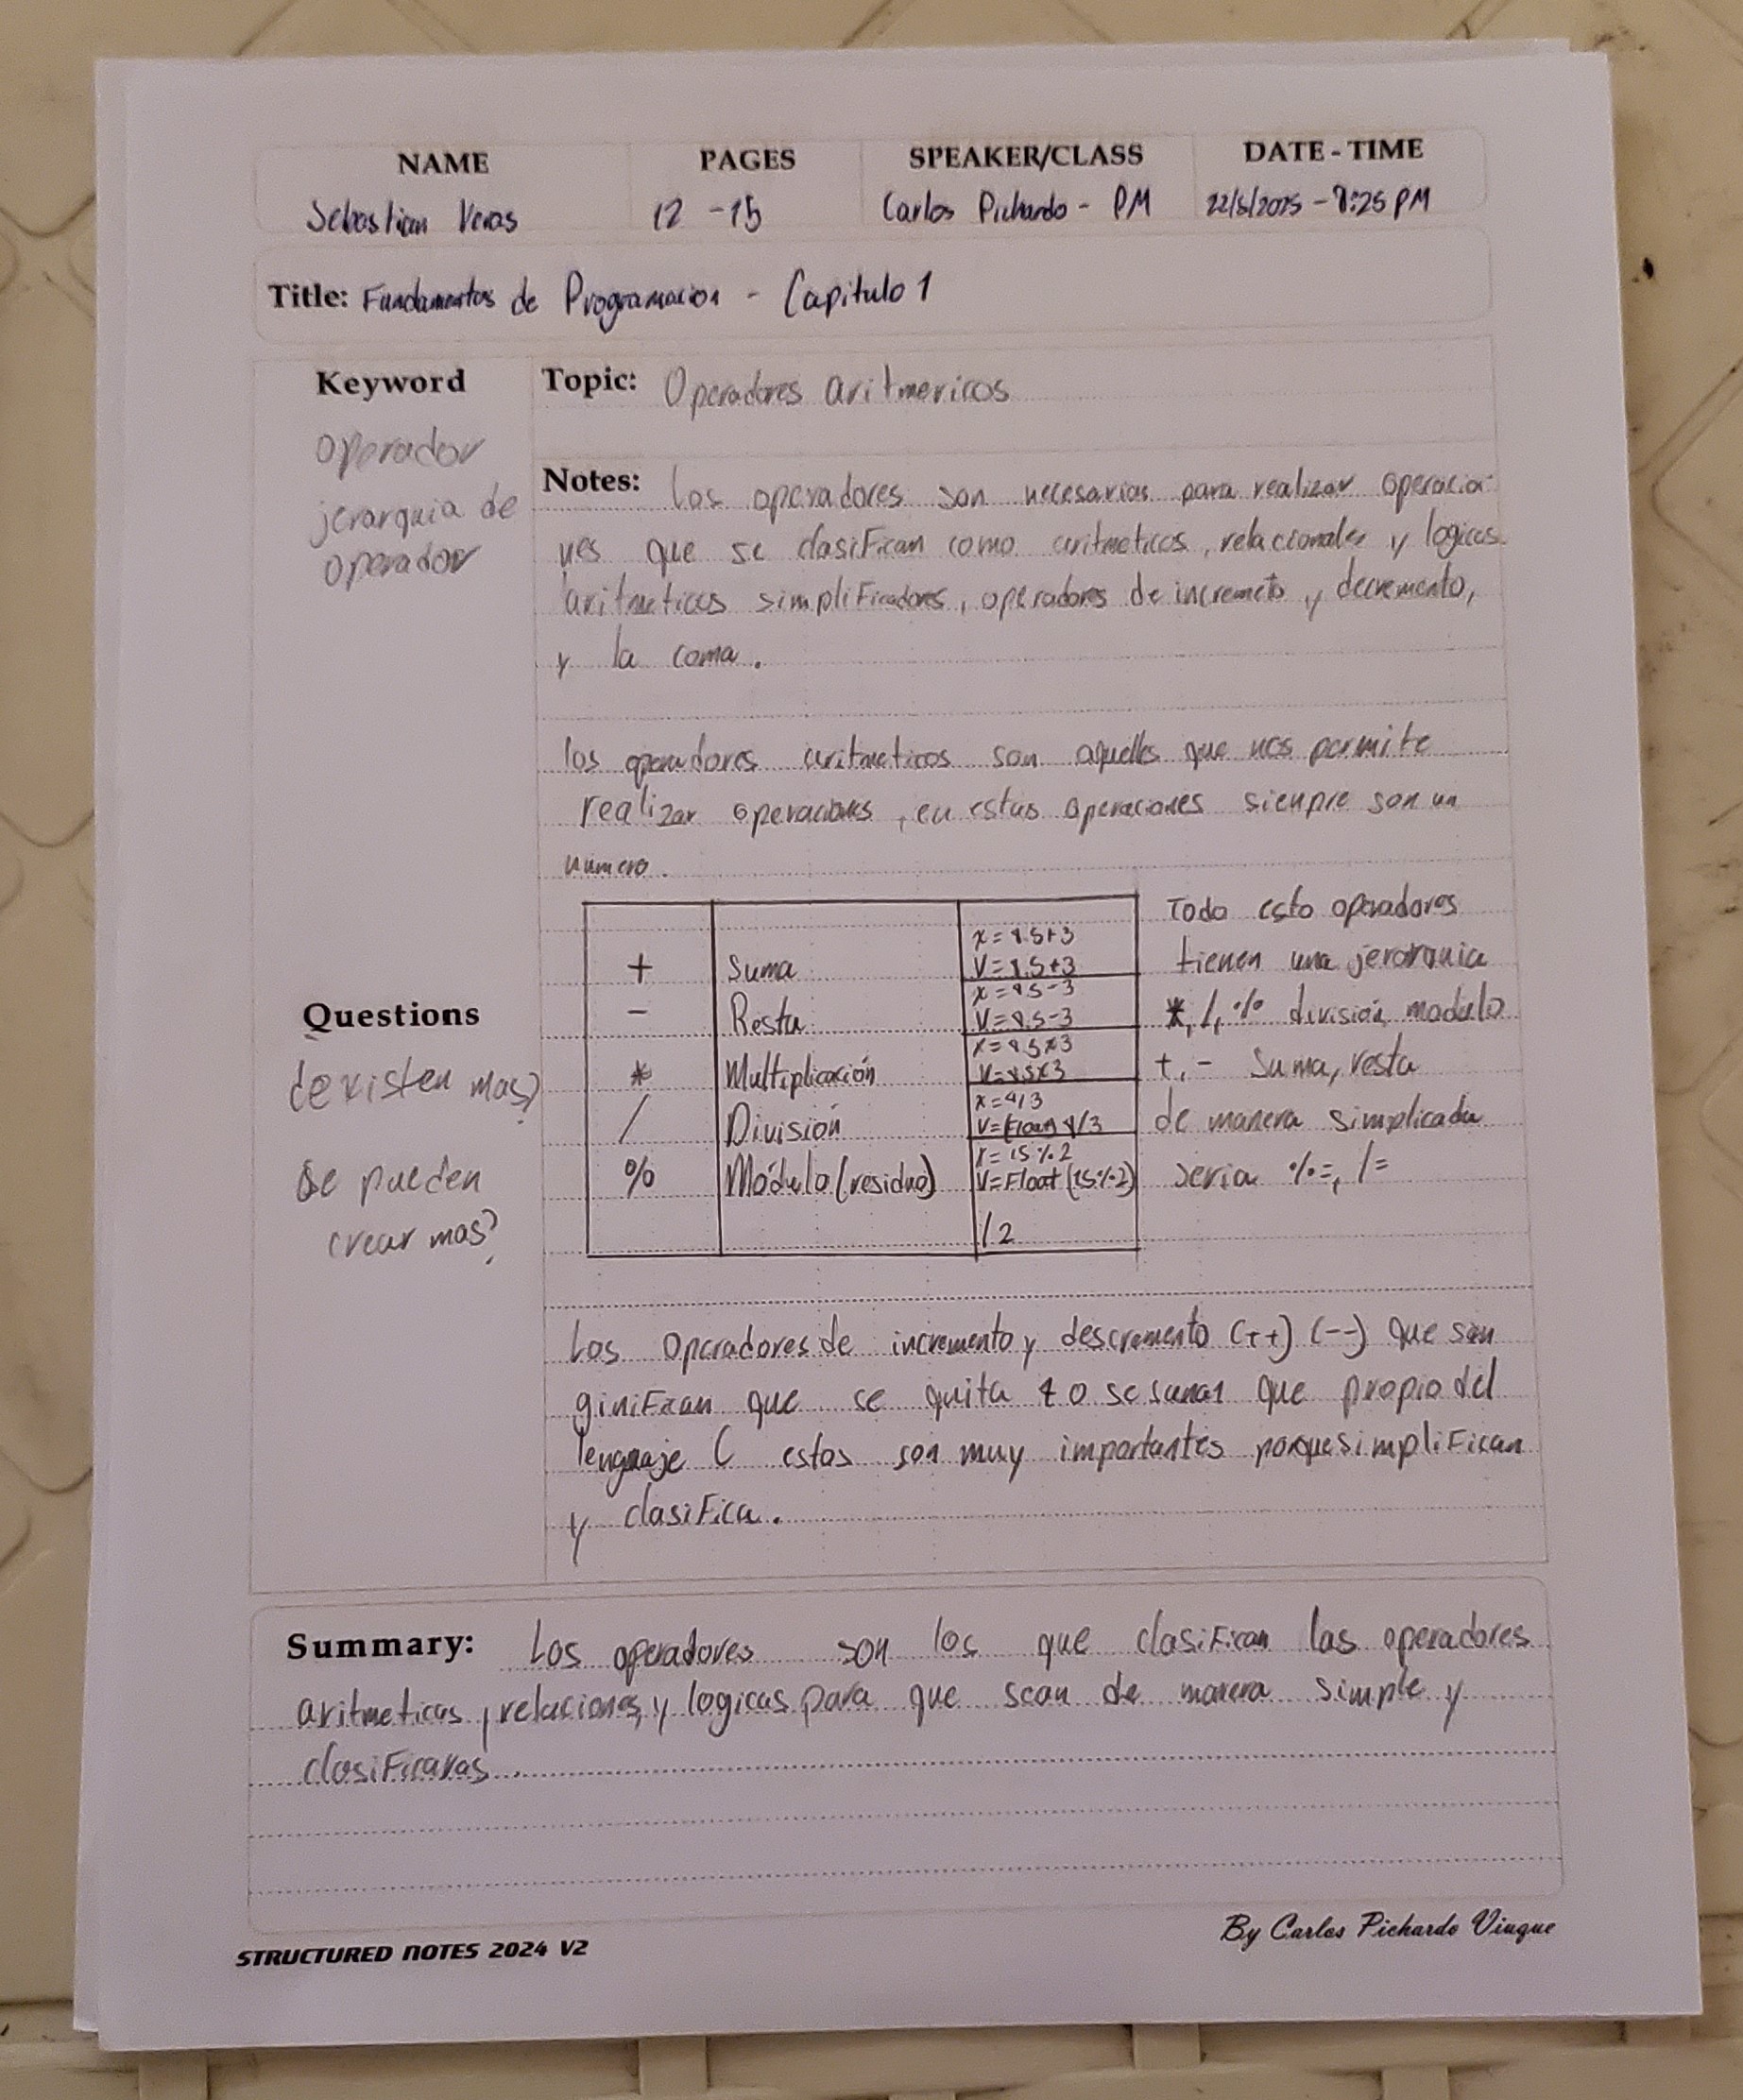 NAME PAGES SPEAKER/CLASS DATE - TIME
Sebastian Veras 12 - 15 Carlos Pichardo - PM 22/5/2025 - 8:25 PM
Title: Fundamentos de Programacion - Capitulo 1
Keyword
operador
jerarquia de
operador
Topic: Operadores aritmericos
Notes: Los operadores son necesarias para realizar operacio-
nes que se clasifican como aritmeticos, relacionales y logicos.
aritmeticos simplificadores, operadores de incremeto y decremento,
y la coma.
los operadores aritmeticos son aquellos que nos permite
realizar operaciones, en estas operaciones siempre son un
numero.
+ Suma x = 8.5+3
V = 8.5+3
- Resta x = 8.5-3
V = 8.5-3
* Multiplicación x = 8.5*3
V = 8.5*3
/ División x = 4/3
V = 4/3
% Módulo (residuo) x = 15%2
V = Float (15%2)
/2
Todo esto operadores
tienen una
*, /, % división, modulo
+, - Suma, resta
de manera simplicada
seria %=, /=
Questions
¿existen mas?
Se pueden
crear mas?
Los Operadores de incremento y descremento (++) (--) que son
que se quita 1 o se suma 1 que propio del
lenguaje C estos son muy importantes porque simplifican
y clasifica.
Summary: Los operadores son los que clasifican las operadores
aritmeticas, relaciones, y logicas para que sean de manera simple y
STRUCTURED NOTES 2024 V2
By Carlos Pichardo Viuque